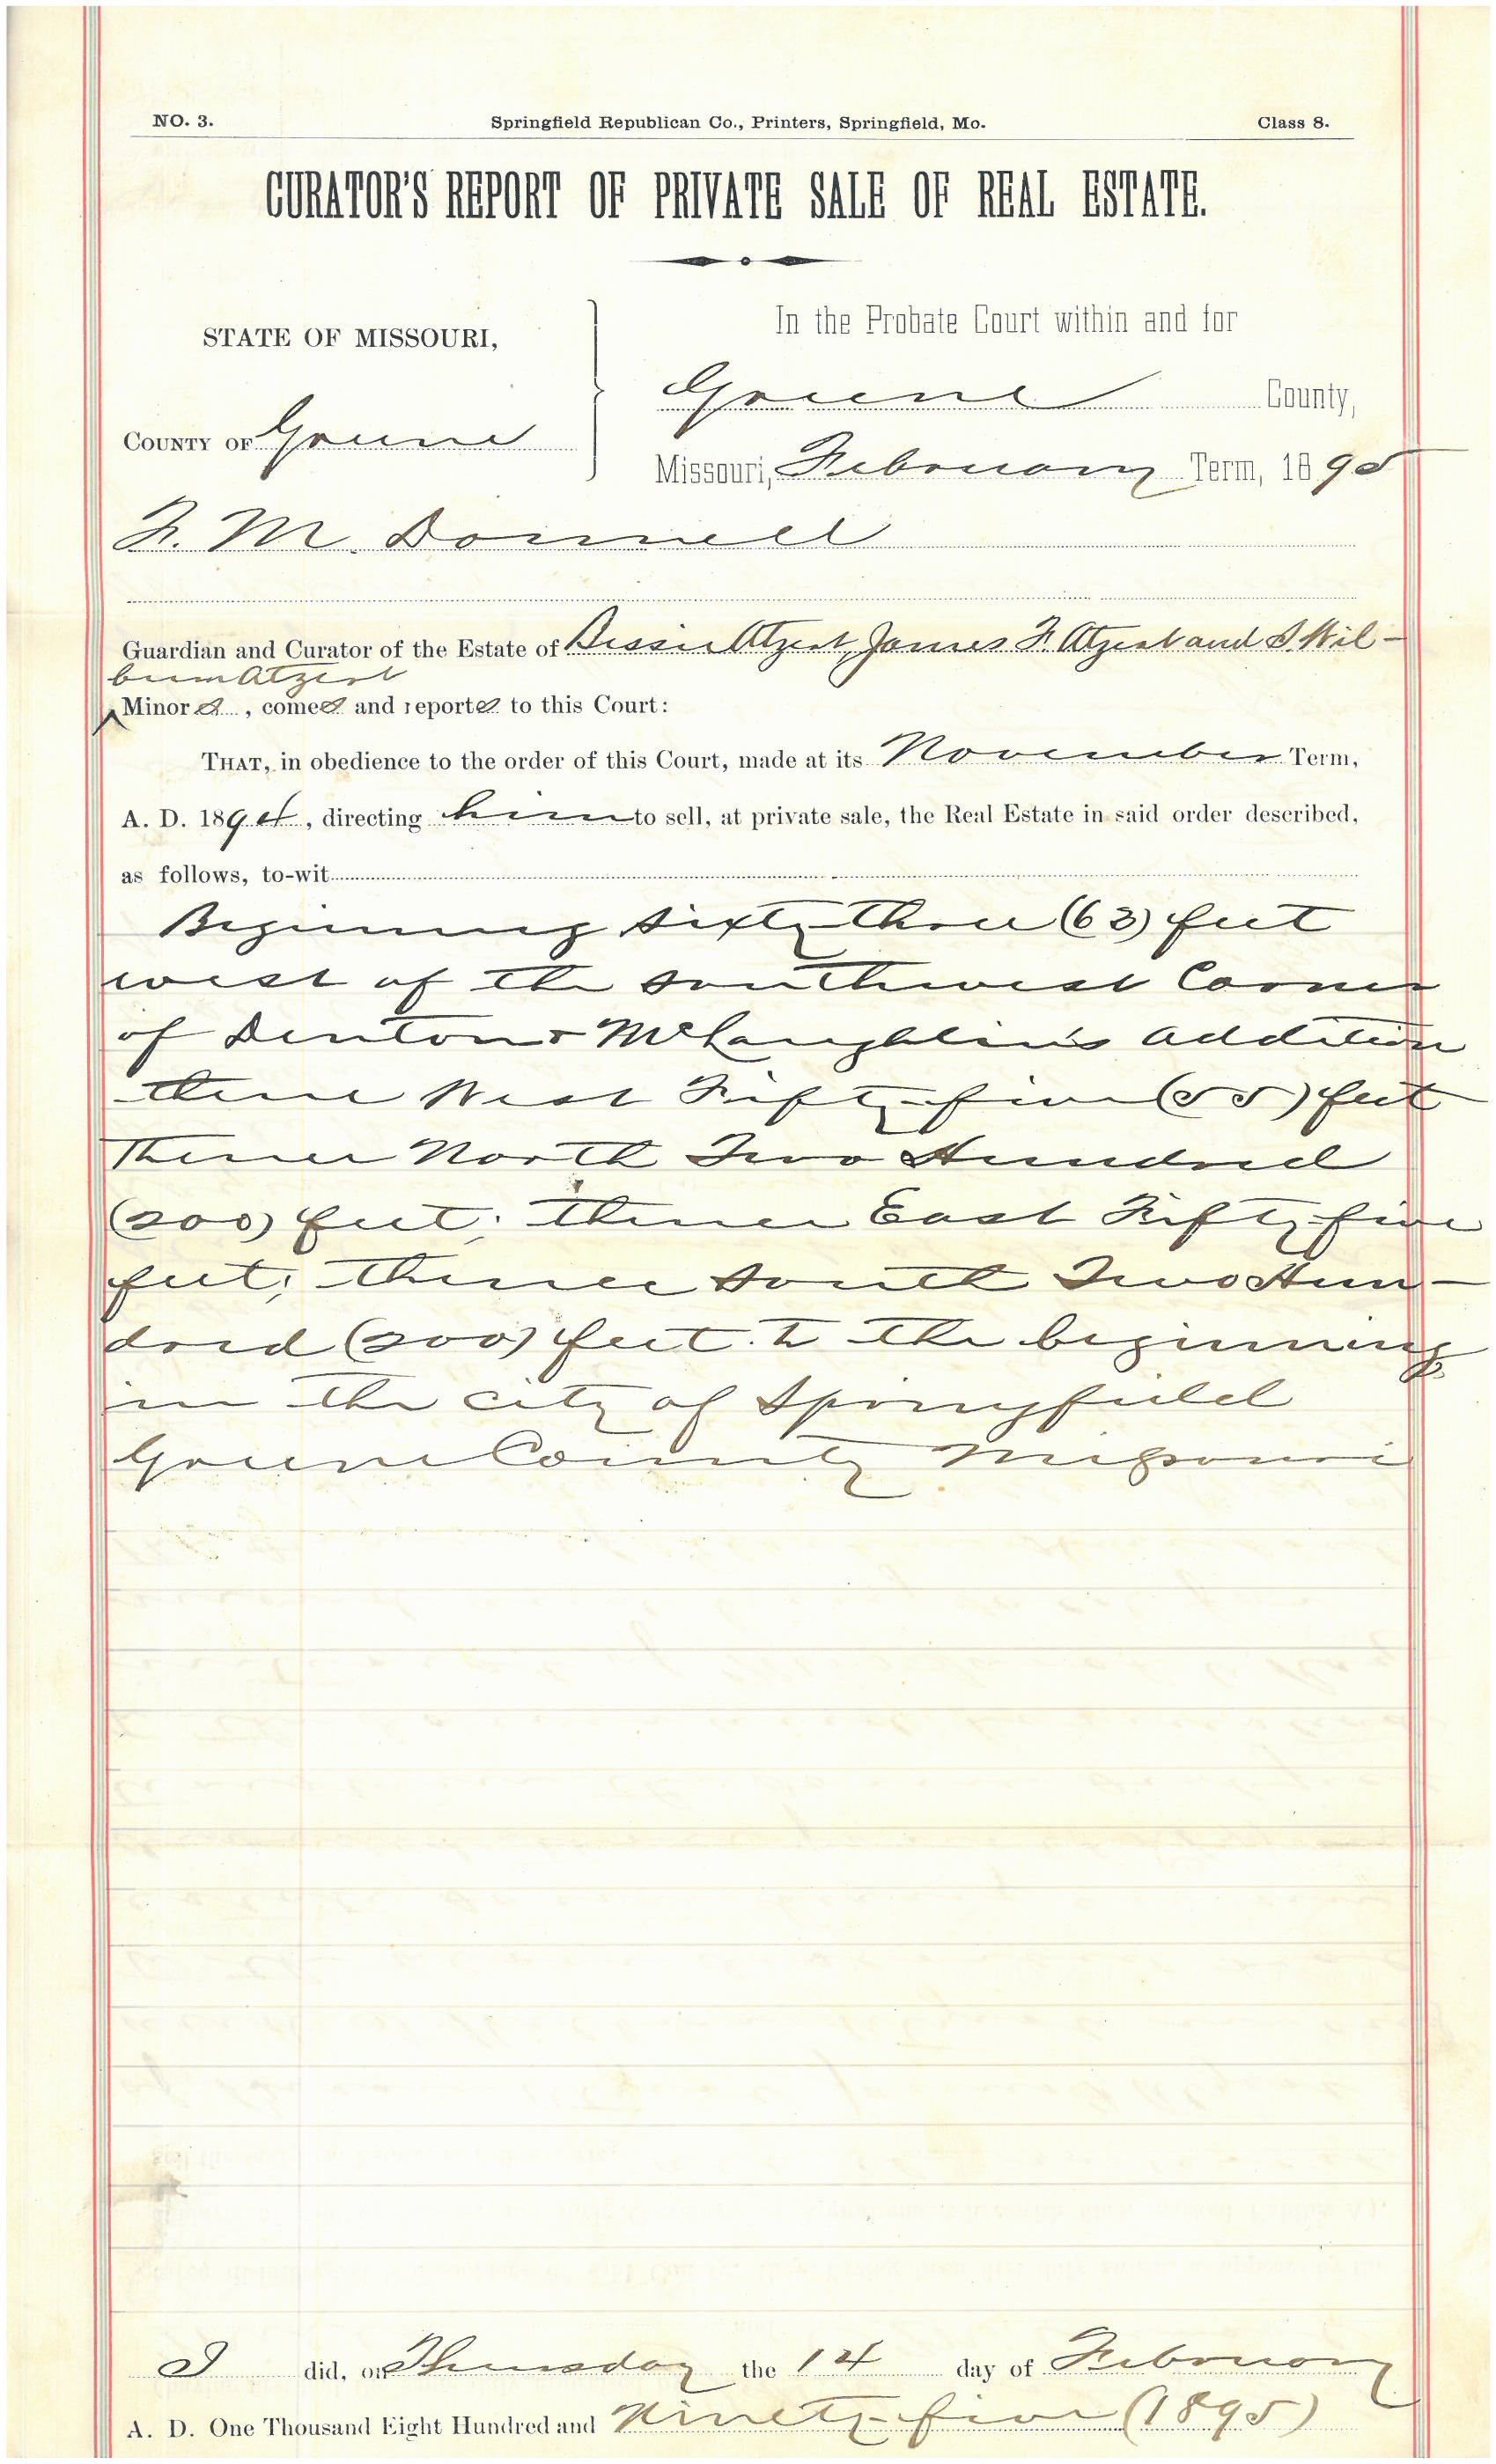 NO. 3. Springfield Republican Co., Printers, Springfield, Mo. Class 8.
CURATOR'S REPORT OF PRIVATE SALE OF REAL ESTATE.
STATE OF MISSOURI,
COUNTY OF Greene
In the Probate Court within and for
Greene County,
Missouri, February Term, 1895
F. M. Donnell
Guardian and Curator of the Estate of Bessie Atzert, James F. Atzert and S. Wil-
burn Atzert
Minors, comes and reports to this Court:
THAT, in obedience to the order of this Court, made at its November Term,
A. D. 1894, directing him to sell, at private sale, the Real Estate in said order described,
as follows, to-wit
Beginning sixty-three (63) feet
west of the southwest Corner
of Denton & McLaughlin's addition
thence West Fifty-five (55) feet
Thence North Two Hundred
(200) feet; thence East Fifty-five
feet; thence South Two Hun-
dred (200) feet to the beginning,
in the city of Springfield
Greene County Missouri
I did, on Thursday the 14 day of February
A. D. One Thousand Eight Hundred and Ninety-five (1895)